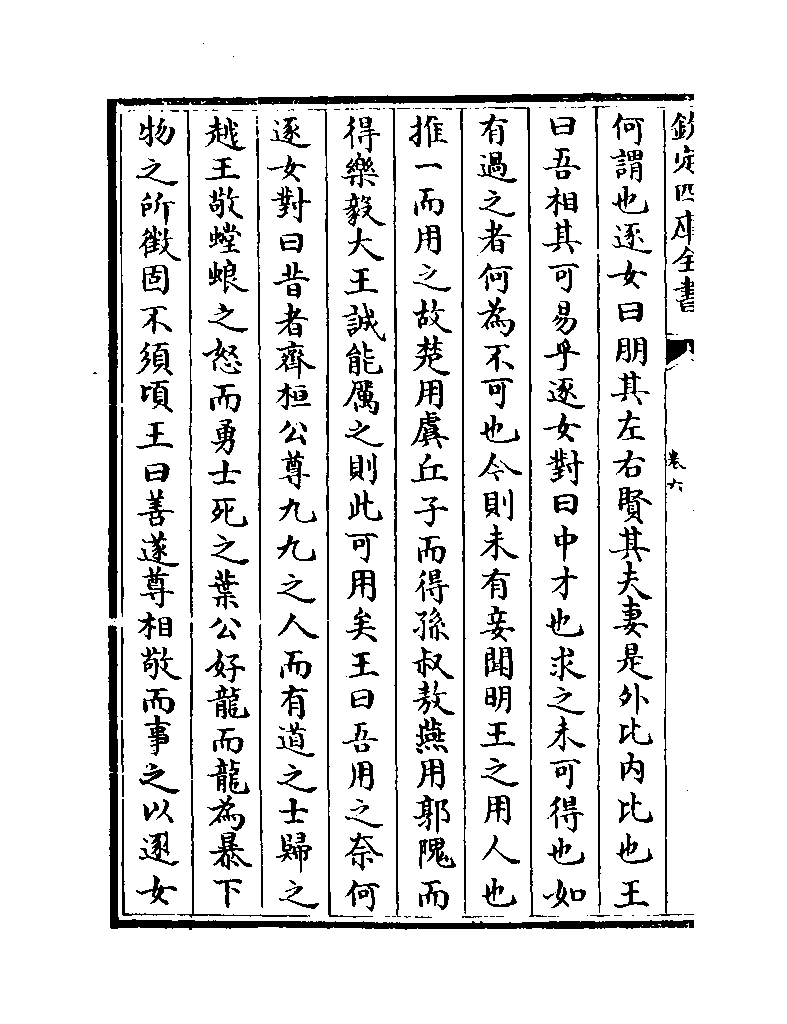 欽定四庫全書
卷六
何謂也逐女曰朋其左右賢其夫妻是外比内比也王
曰吾相其可易乎逐女對曰中才也求之未可得也如
有過之者何為不可也今則未有妾聞明王之用人也
推一而用之故楚用虞丘子而得孫叔敖燕用郭隗而
得樂毅大王誠能厲之則此可用矣王曰吾用之奈何
逐女對曰昔者齊桓公尊九九之人而有道之士歸之
越王敬螳蜋之怒而勇士死之葉公好龍而龍為暴下
物之所徴固不須頃王曰善遂尊相敬而事之以逐女